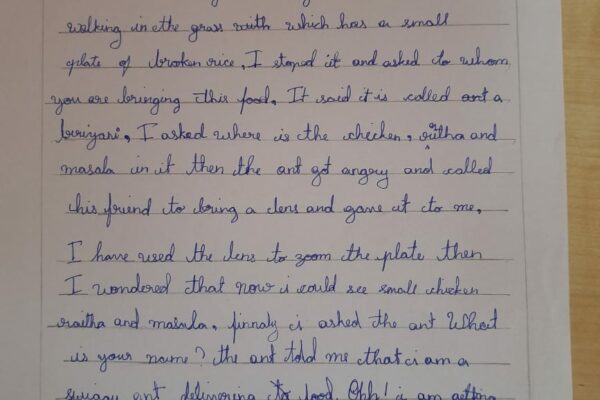 walking in the grass with which has a small
plate of broken rice, I stoped it and asked to whom
you are bringing this food. It said it is called ant a
biriyani, I asked where is the chicken, raitha and
masala in it then the ant got angry and called
his friend to bring a lens and gave it to me.
I have used the lens to zoom the plate then
I wondered that now i could see small chicken
raitha and masala. finnaly i asked the ant What
is your name? the ant told me that i am a
swiggy ant delivering food. Ohh! i am getting